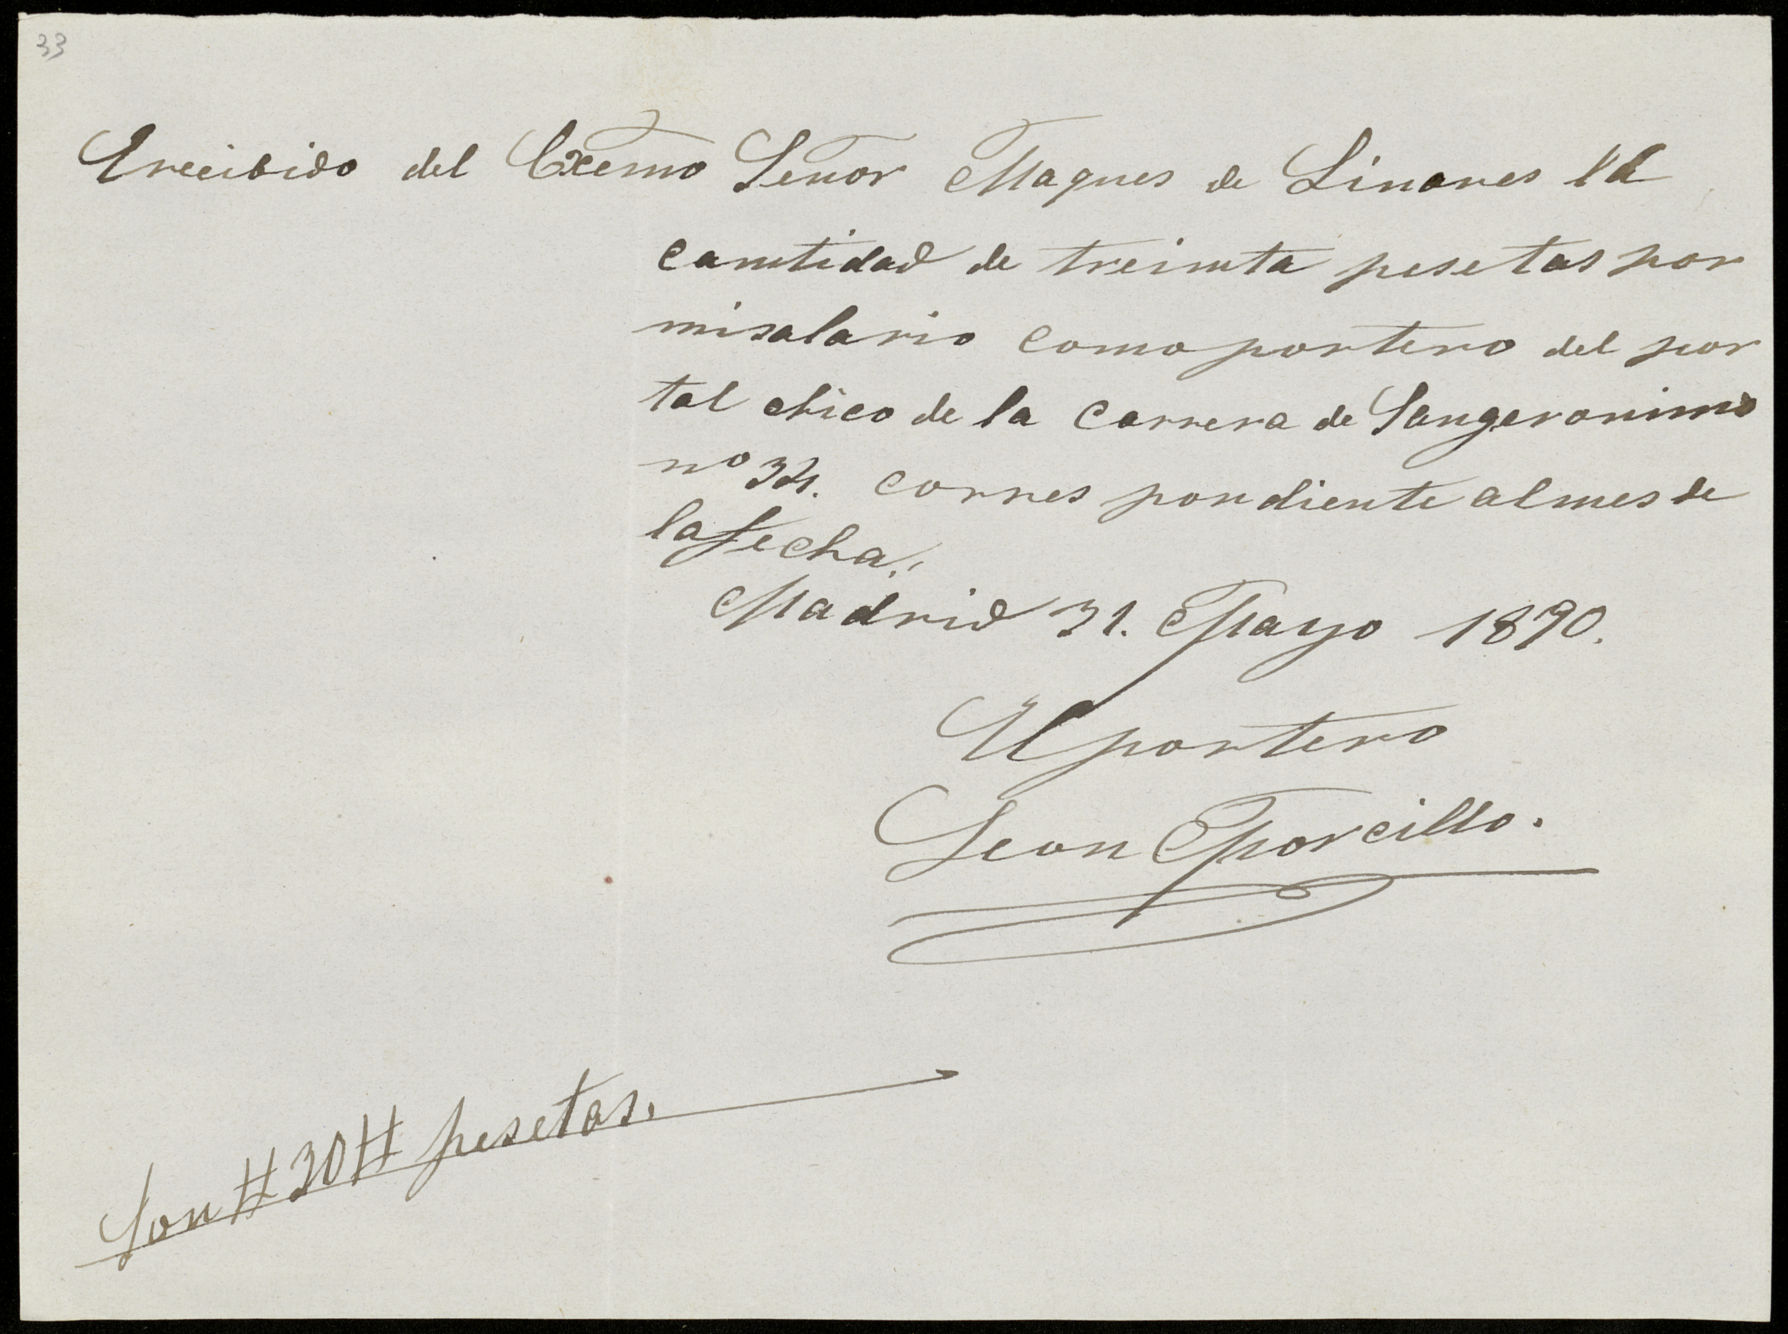 33
Erecibido del Excmo Señor Maques de Linares la
camtidad de treimta pesetas por
misalario como portero del por
tal chico de la Carrera de Sangeronimo
nº 34. corres pondiente almes de
lafecha.
Madrid 31. Mayo 1890.
El portero
Leon Morcillo.
Son #30# pesetas.